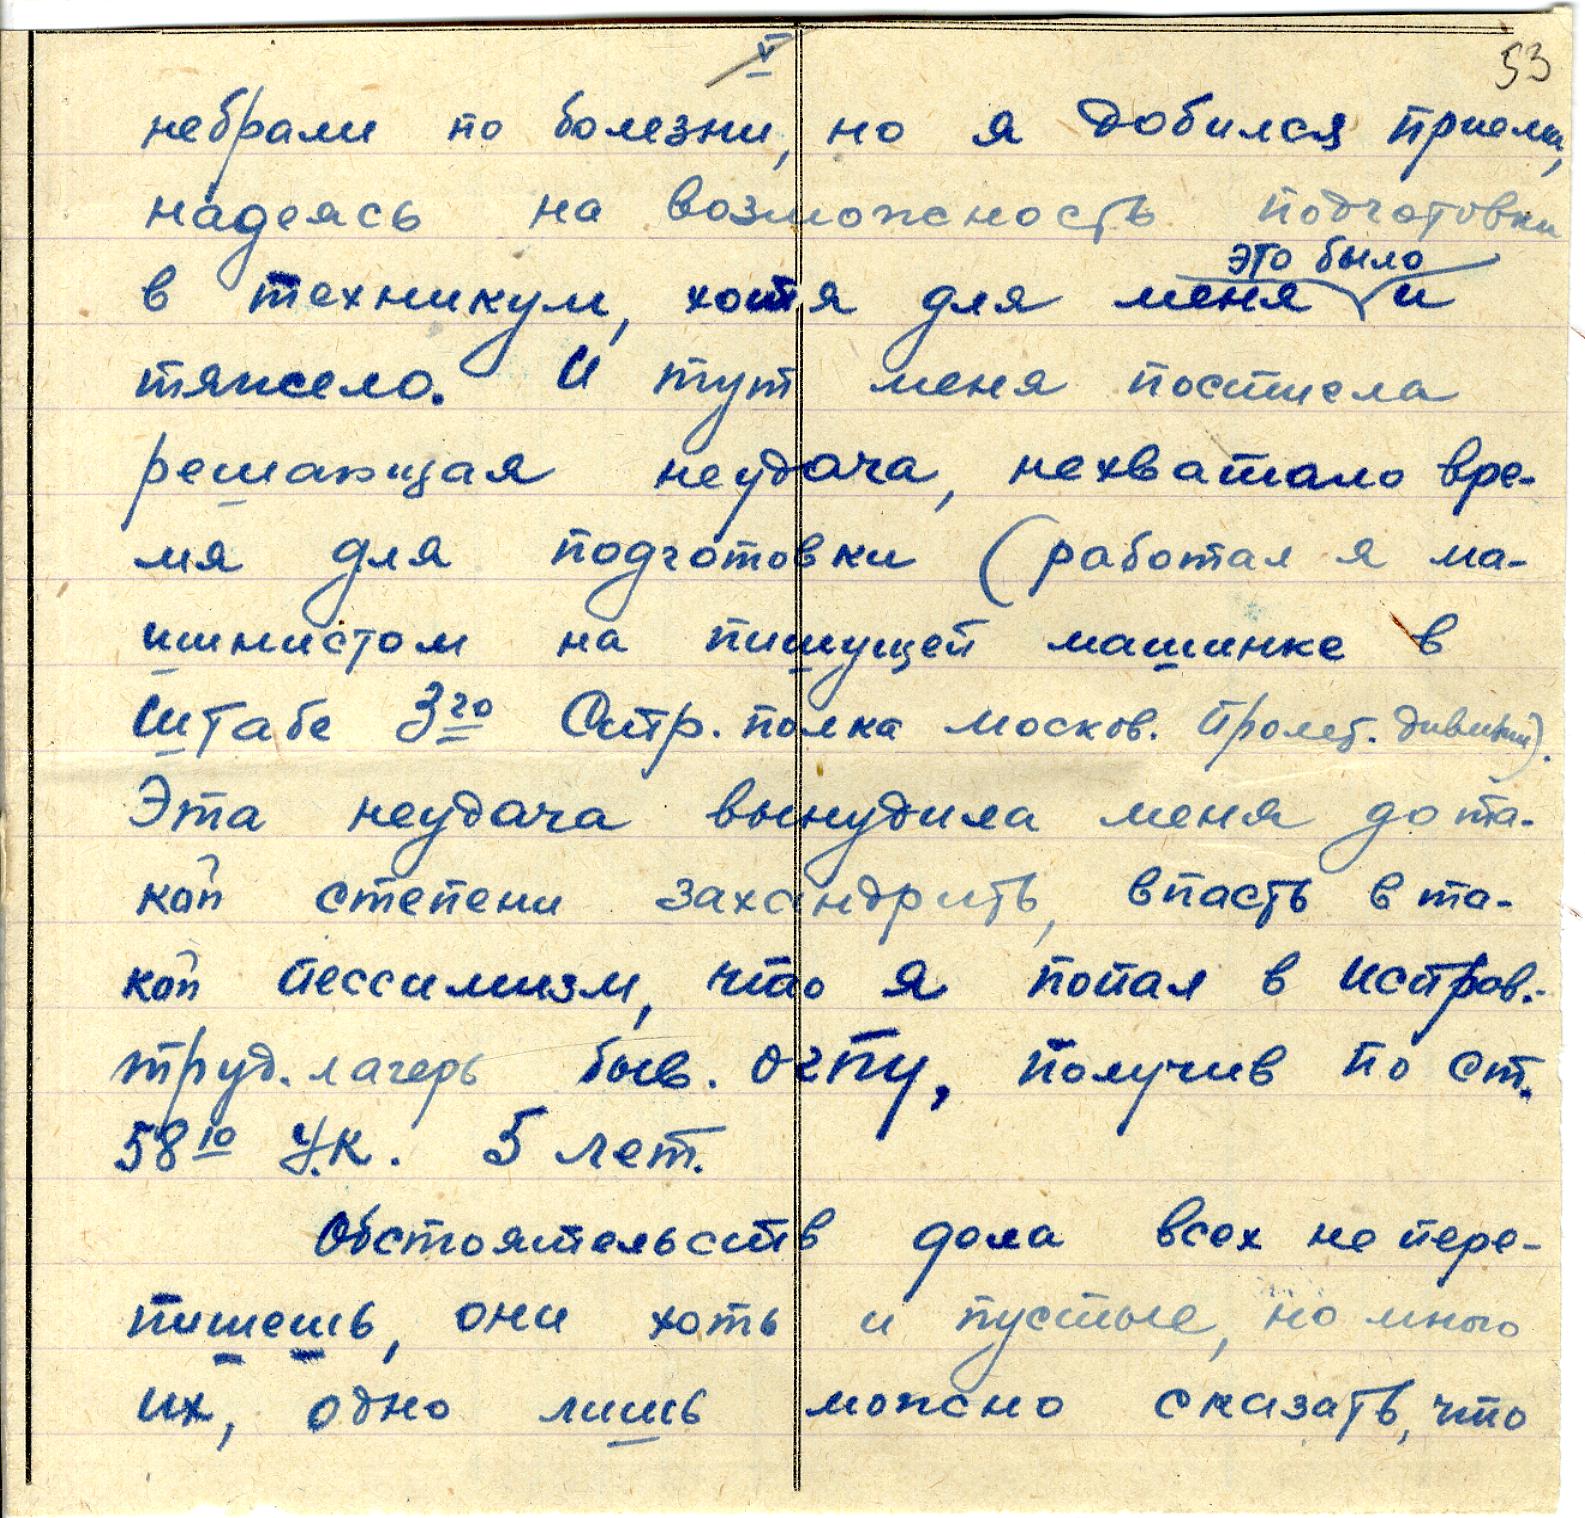 V
53
небрали по болезни, но я добился приема,
надеясь на возможность подготовки
это было
в техникум, хотя для меня и
тяжело. И тут меня постигла
решающая неудача, нехватало вре-
мя для подготовки (работал я ма-
шинистом на пишущей машинке в
Штабе 3го Стр. полка москов. Пролет. дивизии).
Эта неудача вынудила меня до та-
кой степени захандрить, впасть в та-
кой пессимизм, что я попал в Исправ.-
труд. лагерь быв. ОГПУ, получив по ст.
58 10 У.К. 5 лет.
Обстоятельств дела всех не пере-
пишешь, они хоть и пустые, но много
их, одно лишь можно сказать, что